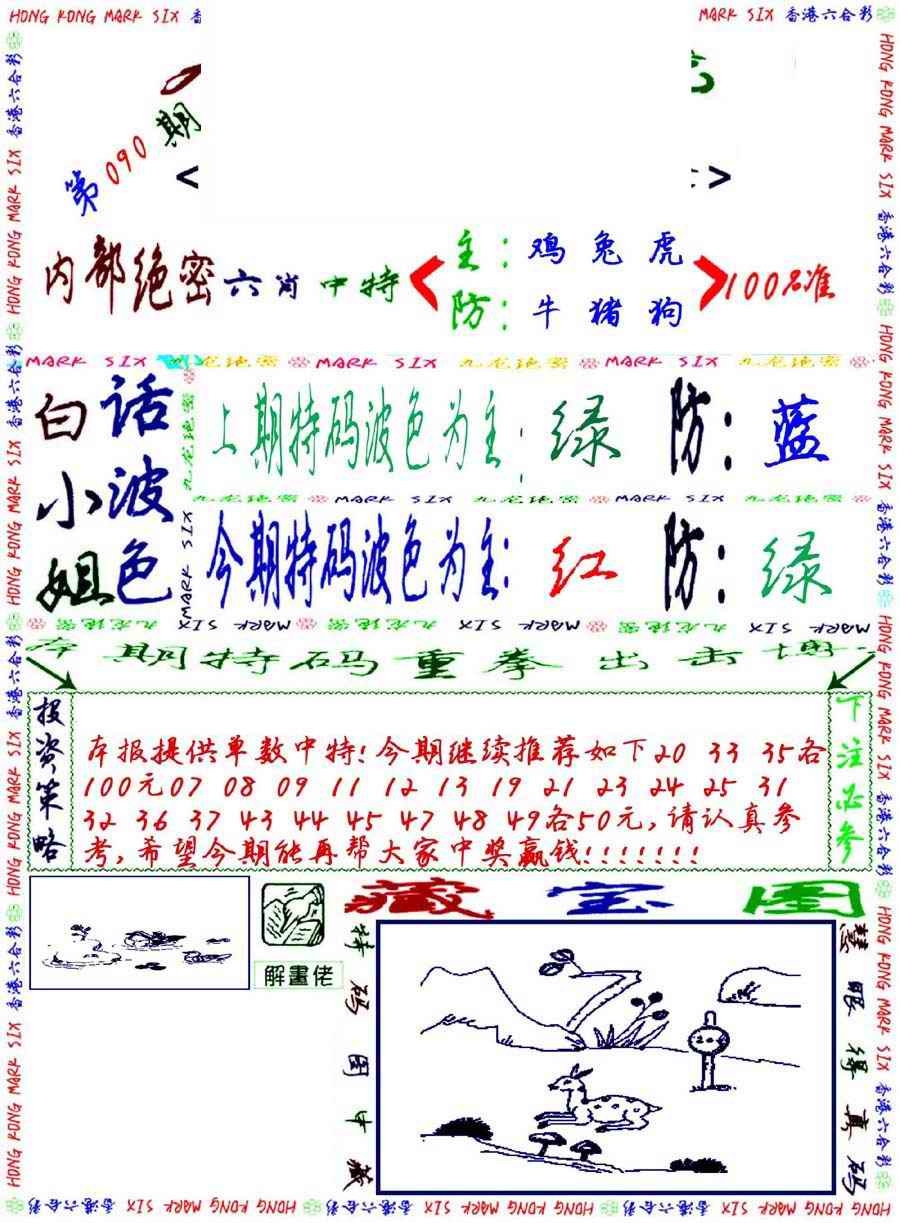 HONG KONG MARK SIX 香
MARK SIX 香港六合彩
第090期
< >
内部绝密六肖中特
主：鸡 兔 虎
防：牛 猪 狗
100%准
MARK SIX 九龙绝密 MARK SIX 九龙绝密 MARK SIX 九龙绝密
白话
小波
姐色
上期特码波色为主：绿 防：蓝
九龙绝密 MARK SIX 九龙绝密 MARK SIX
今期特码波色为主：红 防：绿
九龙绝密 MARK SIX 九龙绝密 MARK SIX 九龙绝密 MARK SIX
期特码重拳出击
投资策略
本报提供单数中特!今期继续推荐如下20 33 35各
100元07 08 09 11 12 13 19 21 23 24 25 31
32 36 37 43 44 45 47 48 49各50元,请认真参
考,希望今期能再帮大家中奖赢钱!!!!!!!
下注必参
解畫佬
藏宝图
特码图中藏
慧眼得真码
HONG KONG MARK SIX 香港六合彩 HONG KONG MARK SIX 香港六合彩 HONG KONG MARK SIX 香港六合彩